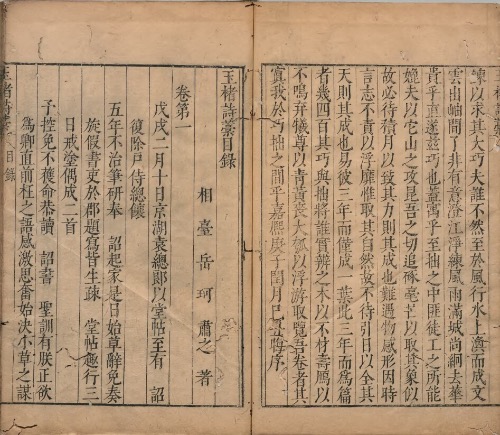 諫以求其大巧夫誰不然至於風行水上渙而成文
雲出岫間了非有意澄江淨練風雨滿城尚絅去華
貴乎直遂茲巧也蓋寓乎至拙之中匪徒工之所能
媲夫以它山之攻昆吾之切追琢毫芒以取隻象似
故必待積月以致其力則其成也難遇物感形因時
言志不責以浮靡惟取其自然故不待引日以全其
天則其成也易彼三年而僅成一葉此三年而為篇
者幾四百其巧與拙將誰實辨之木以不材壽鴈以
不鳴弃犧尊以青黃喪大瓠以浮游取覽吾卷者其
寘我於巧拙之間乎嘉熙庚子閏月己丑臨序
玉楮詩藁目錄
相臺岳珂肅之著
卷第一
戊戌二月十日京湖袁總郎以堂帖至有 詔
復除戶侍總饟
五年不治筆研奉 詔起家是日始草辭免奏
旋假書吏於郡題寫皆生疎 堂帖趣行三
日戒塗偶成二首
予控免不獲命恭讀 詔書 聖訓有朕正欲
爲卿直前枉之語感激思奮始決小草之謀
玉楮詩藁 目錄